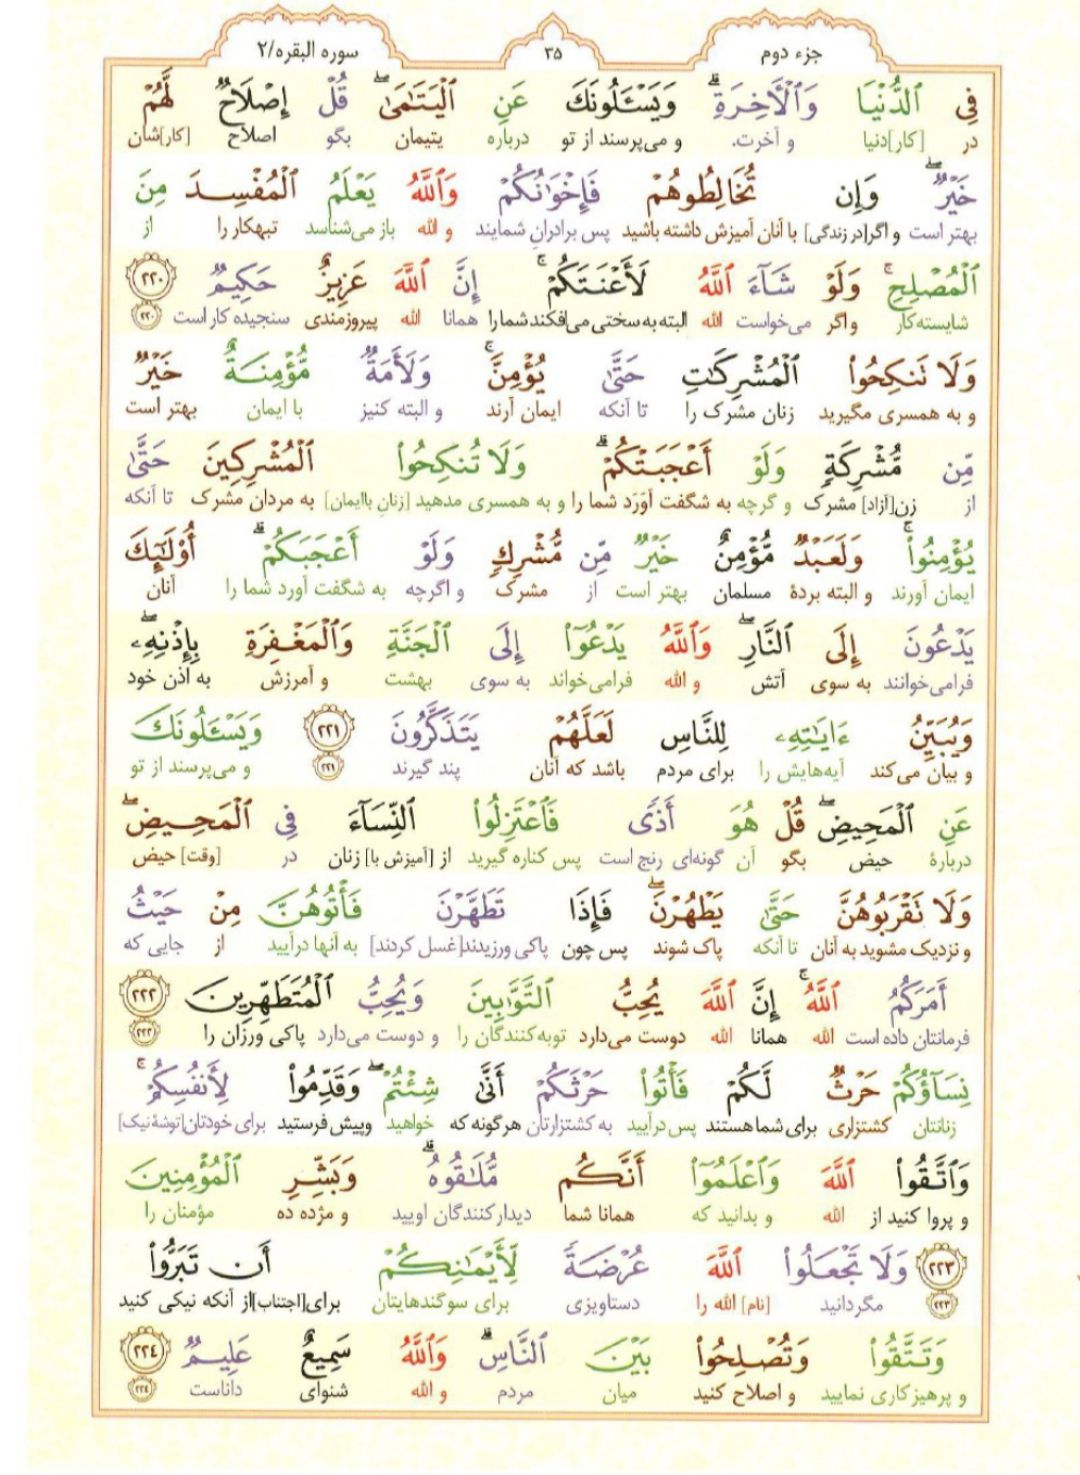 جزء دوم ۳۵ سوره البقره/۲
فِي ٱلدُّنۡيَا وَٱلۡأٓخِرَةِۗ وَيَسۡـَٔلُونَكَ عَنِ ٱلۡيَتَٰمَىٰۖ قُلۡ إِصۡلَاحٞ لَّهُمۡ
در [کار]دنیا و آخرت. و می‌پرسند از تو درباره یتیمان بگو اصلاح [کار]شان
خَيۡرٞۖ وَإِن تُخَالِطُوهُمۡ فَإِخۡوَٰنُكُمۡ وَٱللَّهُ يَعۡلَمُ ٱلۡمُفۡسِدَ مِنَ
بهتر است و اگر[در زندگی] با آنان آمیزش داشته باشید پس برادران شمایند و الله باز می‌شناسد تبهکار را از
ٱلۡمُصۡلِحِۚ وَلَوۡ شَآءَ ٱللَّهُ لَأَعۡنَتَكُمۡۚ إِنَّ ٱللَّهَ عَزِيزٌ حَكِيمٞ ٢٢٠
شایسته‌کار و اگر می‌خواست الله البته به سختی می‌افکند شما را همانا الله پیروزمندی سنجیده کار است ۲۲۰
وَلَا تَنكِحُواْ ٱلۡمُشۡرِكَٰتِ حَتَّىٰ يُؤۡمِنَّۚ وَلَأَمَةٞ مُّؤۡمِنَةٌ خَيۡرٞ
و به همسری مگیرید زنان مشرک را تا آنکه ایمان آرند و البته کنیز با ایمان بهتر است
مِّن مُّشۡرِكَةٖ وَلَوۡ أَعۡجَبَتۡكُمۡۗ وَلَا تُنكِحُواْ ٱلۡمُشۡرِكِينَ حَتَّىٰ
از زن[آزاد] مشرک و گرچه به شگفت آوَرَد شما را و به همسری مدهید [زنان باایمان] به مردان مشرک تا آنکه
يُؤۡمِنُواْۚ وَلَعَبۡدٞ مُّؤۡمِنٌ خَيۡرٞ مِّن مُّشۡرِكٖ وَلَوۡ أَعۡجَبَكُمۡۗ أُوْلَٰٓئِكَ
ایمان آورند و البته بردهٔ مسلمان بهتر است از مشرک و اگرچه به شگفت آورد شما را آنان
يَدۡعُونَ إِلَى ٱلنَّارِۖ وَٱللَّهُ يَدۡعُوٓاْ إِلَى ٱلۡجَنَّةِ وَٱلۡمَغۡفِرَةِ بِإِذۡنِهِۦۖ
فرامی‌خوانند به سوی آتش و الله فرامی‌خواند به سوی بهشت و آمرزش به اذن خود
وَيُبَيِّنُ ءَايَٰتِهِۦ لِلنَّاسِ لَعَلَّهُمۡ يَتَذَكَّرُونَ ٢٢١ وَيَسۡـَٔلُونَكَ
و بیان می‌کند آیه‌هایش را برای مردم باشد که آنان پند گیرند ۲۲۱ و می‌پرسند از تو
عَنِ ٱلۡمَحِيضِۖ قُلۡ هُوَ أَذٗى فَٱعۡتَزِلُواْ ٱلنِّسَآءَ فِي ٱلۡمَحِيضِۖ
دربارهٔ حیض بگو آن گونه‌ای رنج است پس کناره گیرید از [آمیزش با] زنان در [وقت] حیض
وَلَا تَقۡرَبُوهُنَّ حَتَّىٰ يَطۡهُرۡنَۖ فَإِذَا تَطَهَّرۡنَ فَأۡتُوهُنَّ مِنۡ حَيۡثُ
و نزدیک مشوید به آنان تا آنکه پاک شوند پس چون پاکی ورزیدند[غسل کردند] به آنها درآیید از جایی که
أَمَرَكُمُ ٱللَّهُۚ إِنَّ ٱللَّهَ يُحِبُّ ٱلتَّوَّٰبِينَ وَيُحِبُّ ٱلۡمُتَطَهِّرِينَ ٢٢٢
فرمانتان داده است الله همانا الله دوست می‌دارد توبه‌کنندگان را و دوست می‌دارد پاکی ورزان را ۲۲۲
نِسَآؤُكُمۡ حَرۡثٞ لَّكُمۡ فَأۡتُواْ حَرۡثَكُمۡ أَنَّىٰ شِئۡتُمۡۖ وَقَدِّمُواْ لِأَنفُسِكُمۡۚ
زنانتان کشتزاری برای شما هستند پس درآیید به کشتزارتان هر گونه که خواهید وپیش فرستید برای خودتان[توشهٔ نیک]
وَٱتَّقُواْ ٱللَّهَ وَٱعۡلَمُوٓاْ أَنَّكُم مُّلَٰقُوهُۗ وَبَشِّرِ ٱلۡمُؤۡمِنِينَ
و پروا کنید از الله و بدانید که همانا شما دیدارکنندگان اویید و مژده ده مؤمنان را
٢٢٣ وَلَا تَجۡعَلُواْ ٱللَّهَ عُرۡضَةٗ لِّأَيۡمَٰنِكُمۡ أَن تَبَرُّواْ
۲۲۳ مگردانید [نام] الله را دستاویزی برای سوگندهایتان برای[اجتناب]از آنکه نیکی کنید
وَتَتَّقُواْ وَتُصۡلِحُواْ بَيۡنَ ٱلنَّاسِۗ وَٱللَّهُ سَمِيعٌ عَلِيمٞ ٢٢٤
و پرهیزکاری نمایید و اصلاح کنید میان مردم و الله شنوای داناست ۲۲۴